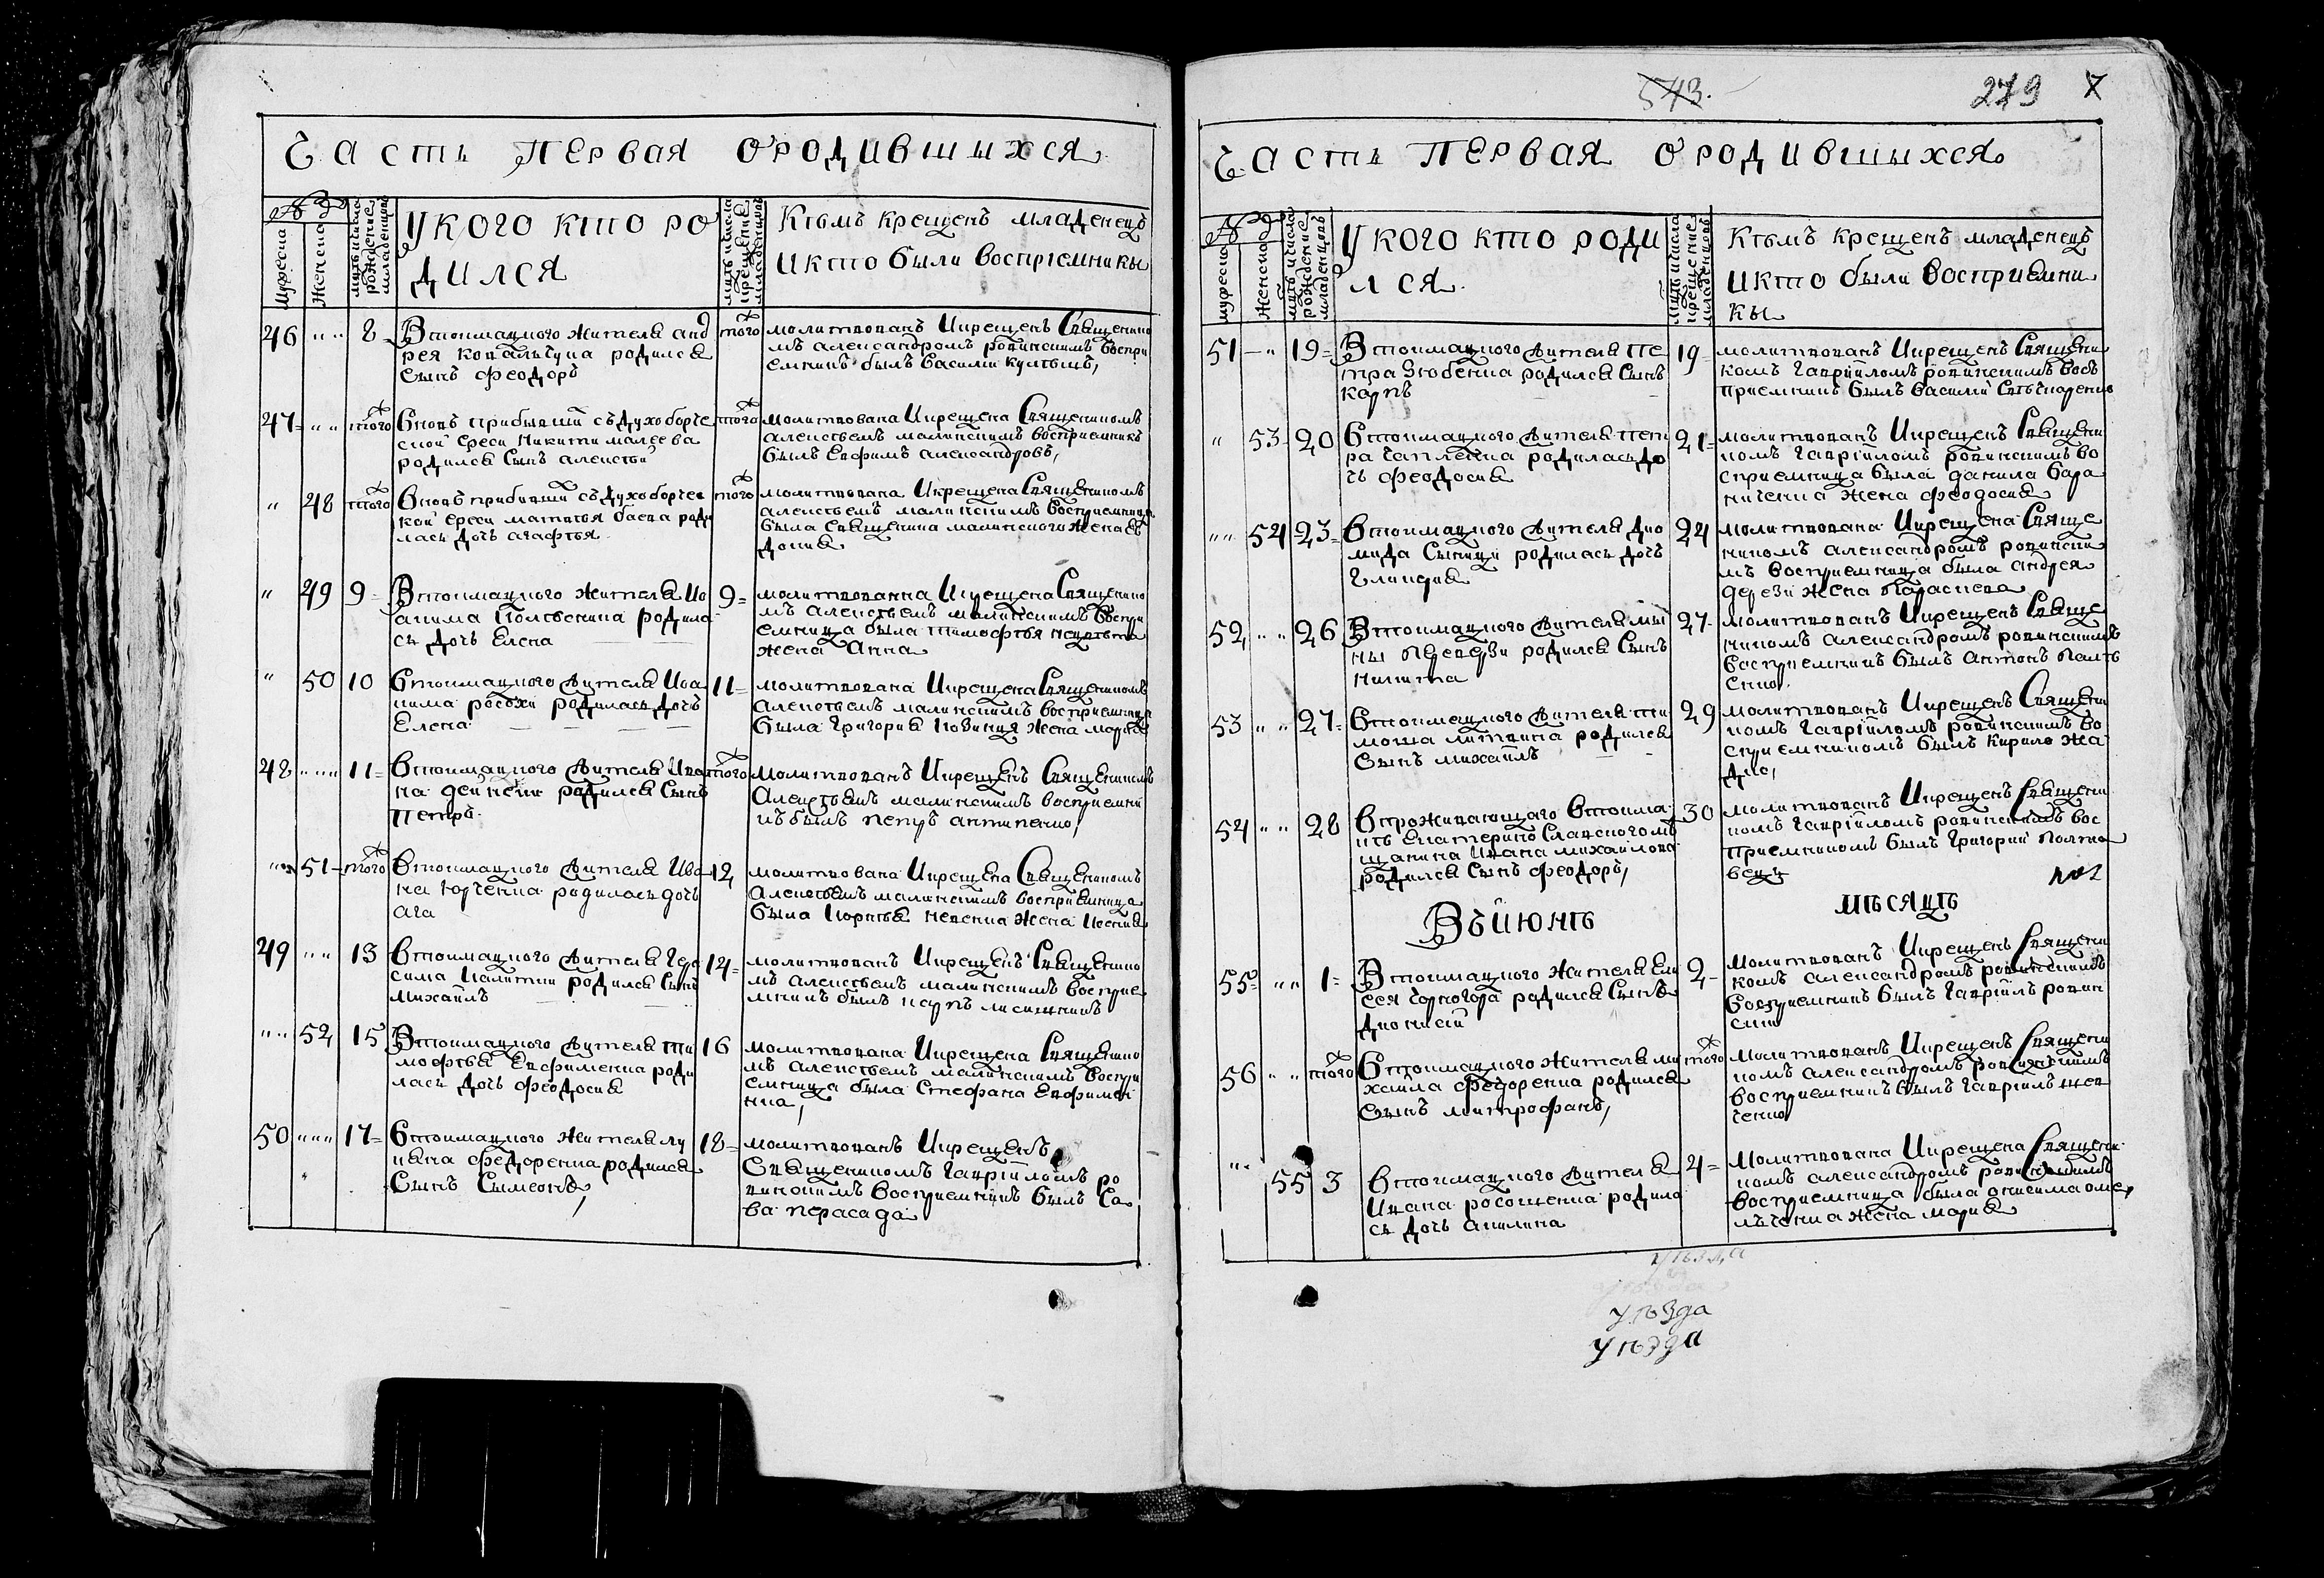 Часть первая ородившихся
№
мужеска
женска
мць ичисла рождение младенцовъ
У кого кто ро
дился
мць ичисла крещение младенцовъ
Кѣмъ крещенъ младенецъ
икто были воспріемники
46 8 Втокмацкого жителя анд
рея ковальчука родился
сынъ феодоръ
того молитвованъ Икрещенъ Священнико
мъ александромъ ровинскимъ воспри
емникъ былъ василій
47 того Вновъ прибывшій съдухоборче
ской ереси никити малеева
родился сынъ алексѣй
того молитвована Икрещена Священикомъ
алексѣемъ малинскимъ восприемникъ
былъ Евфимъ александровъ,
48 того Вновъ прибивши съдухоборчес
кой ереси матвѣя баева роди
лась дочь агафѣя
того молитвована Икрещена Священикомъ
алексѣемъ малинскимъ восприемница
была священика малинского жена Ев
докия
49 9 Втокмацкого жителя Ио
акима родила
сь дочь Елена
9 молитвованна Икрещена Священико
мъ алексѣемъ малинскимъ воспри
емница была тимофѣя
жена Анна
50 10 Втокмацкого жителя Иоа
кима росохи родилась дочь
Елена
11 молитвована Икрещена Священикомъ
алексѣемъ малинскимъ восприемница
была григория жена мария
48 11 Втокмацкого жителя Ива
на дейнеки родился сынъ
петръ
того молитвованъ Икрещенъ Священикомъ
Алексѣемъ малинскимъ восприемни
къ былъ петръ антипенко,
51 того Втокмацкого жителя Ива
на юрченка родилась дочь
ага
12 молитвована Икрещена Священикомъ
Алексѣемъ малинскимъ восприемница
была жена Ксения
49 13 Втокмацкого жителя гера
сима Калитки родился сынъ
михаилъ
14 молитвованъ Икрещенъ Священико
мъ алексѣемъ малинскимъ восприе
мникъ былъ карпъ
52 15 Втокмацкого жителя ти
мофѣя Евфименка роди
лась дочь феодосия
16 молитвована Икрещена Священико
мъ алексѣемъ малинскимъ воспри
емница была Стефана Евфимен
ка,
50 17 Втокмацкого жителя лу
кяна федоренка родился
Сынъ Сымеонъ,
18 молитвованъ Икрещенъ
Священикомъ гавріиломъ ро
винскимъ восприемникъ былъ Са
ва перасада
573.
279 7
Часть первая ородившихся
№
мужеска
женска
мць ичисла рождение младенцовъ
У кого кто роди
лся
мць ичисла крещение младенцовъ
Кѣмъ крещенъ младенецъ
икто были восприемни
кы
51 19 Втокмацкого жителя пе
тра Зюбенка родился Сынъ
карпъ
19 молитвованъ Икрещенъ Священи
комъ гавріиломъ ровинскимъ вос
приемникъ былъ василій
53 20 Втокмацкого жителя пет
ра чапленка родилась до
чь феодосия
21 молитвованъ Икрещенъ Священи
комъ гавріиломъ ровинскимъ во
сприемница была данила бара
ниченка жена феодосия
54 23 Втокмацкого жителя дио
мида Сыници родилась дочь
Гликерия
24 молитвована Икрещена Свяще
никомъ александромъ ровински
мъ восприемница была андрея
дерези жена параскева
52 26 Втокмацкого жителя мы
ны перевези родился Сынъ
никита
27 молитвованъ Икрещенъ Свяще
никомъ александромъ ровинскимъ
восприемникъ былъ Антонъ
53 27 Втокмацкого жителя ти
моша литвина родился
Сынъ михаилъ
29 молитвованъ Икрещенъ Священи
комъ гавріиломъ ровинскимъ во
сприемникомъ былъ кирило
54 28 Впроживающаго втокма
ке Екатеринославского мѣ
щанина Ивана михайлова
родился сынъ феодоръ,
30 молитвованъ Икрещенъ Священи
комъ гавріиломъ ровинскимъ вос
приемникомъ былъ григорий полто
вець
Въиюнѣ
мѣсяцѣ
55 1 Втокмацкого жителя Ели
сея чорногора родился сынъ
дионисій
2 молитвованъ Икрещенъ Священи
комъ александромъ ровинскимъ
восприемникъ былъ гавріилъ ровин
скій
56 того Втокмацкого жителя ми
хаила федоренка родился
сынъ митрофанъ,
того молитвованъ Икрещенъ Священи
комъ александромъ ровинскимъ
восприемникъ былъ гавріилъ шев
ченко
55 3 Втокмацкого жителя
Ивана росошенка родила
сь дочь акилина
4 молитвована Икрещена Священи
комъ александромъ ровинскимъ
восприемница была онисима оме
льченка жена мария
уѣзда
уѣзда
уѣзда